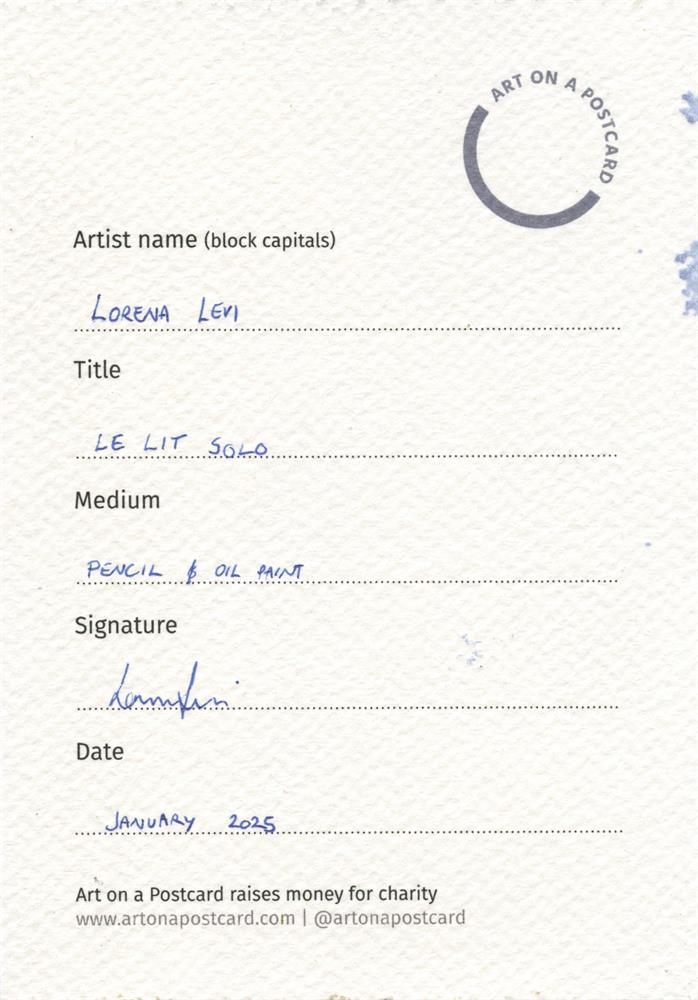 ART ON A POSTCARD
Artist name (block capitals)
LORENA LEVI
Title
LE LIT SOLO
Medium
PENCIL & OIL PAINT
Signature
Date
JANUARY 2025
Art on a Postcard raises money for charity
www.artonapostcard.com | @artonapostcard